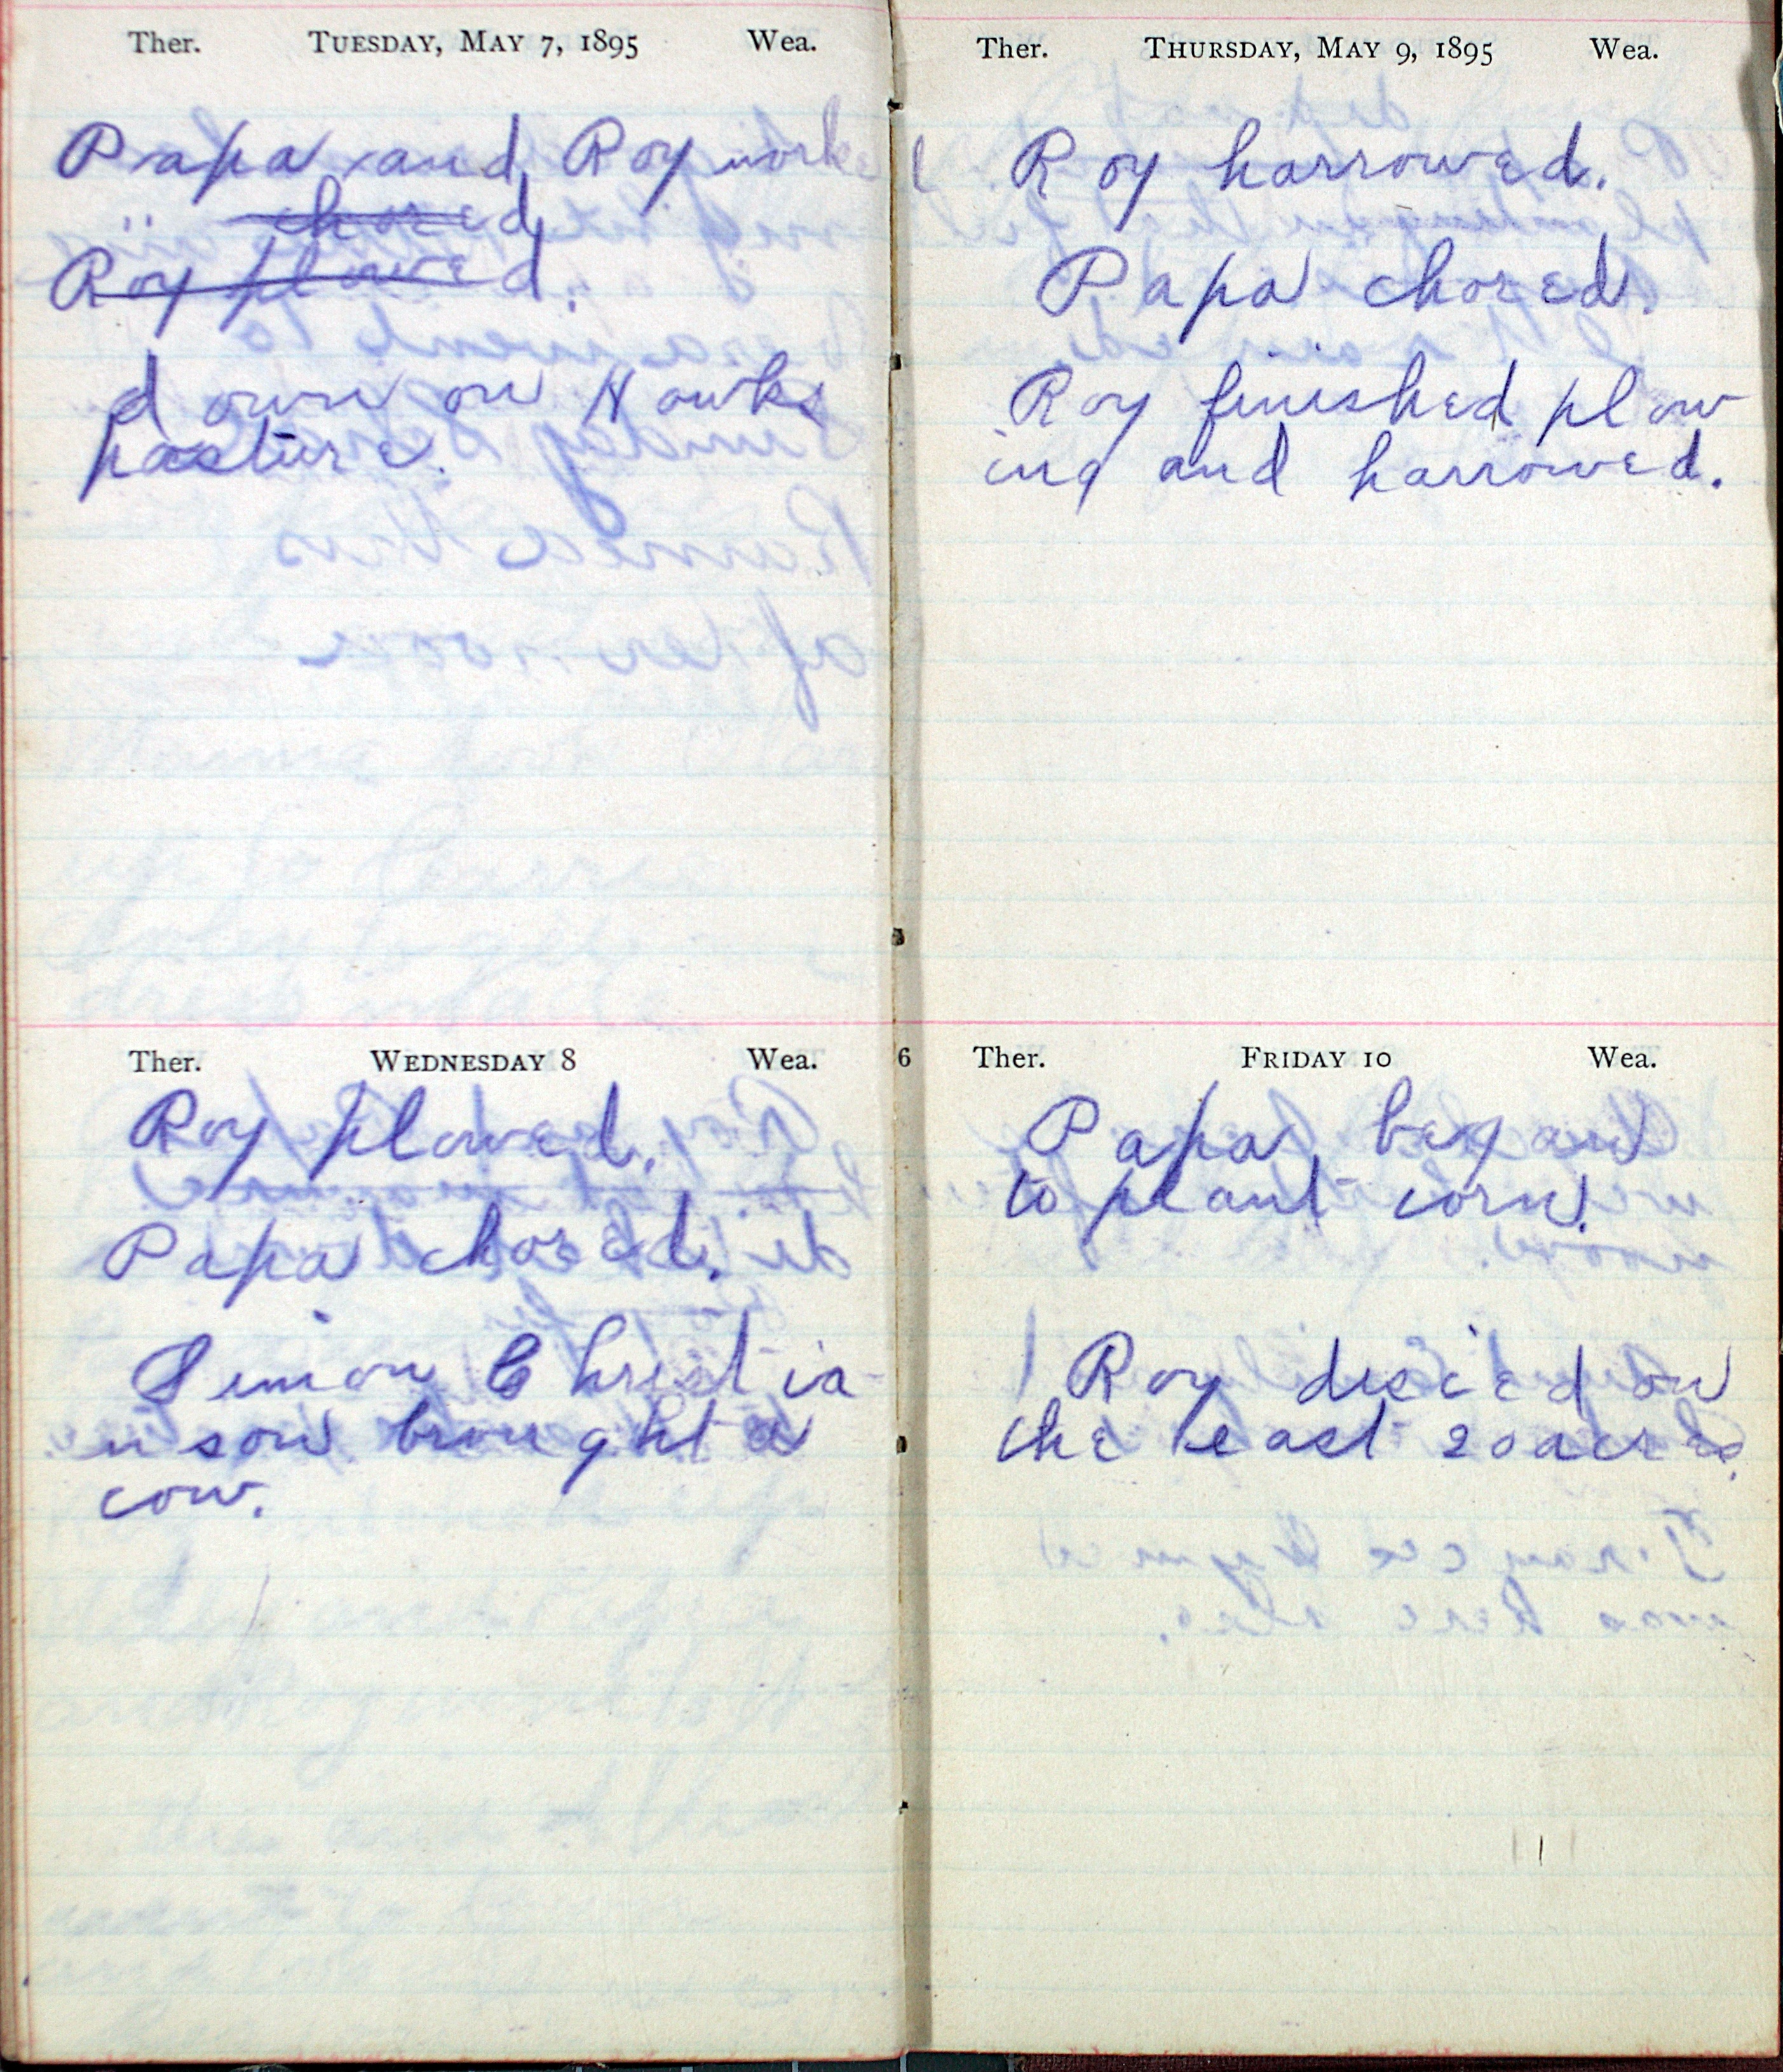 Ther. TUESDAY, MAY 7, 1895 Wea.
Papa and Roy worked
" chored
Roy plowed.
down on Hawks
pasture.
Ther. WEDNESDAY 8 Wea.
Roy plowed.
Papa chored.
Simon Christia-
nson brought a
cow.
Ther. THURSDAY, MAY 9, 1895 Wea.
Roy harrowed.
Papa chored.
Roy finished plow
ing and harrowed.
6
Ther. FRIDAY 10 Wea.
Papa began
to plant corn.
Roy discied on
the east 20 acres.